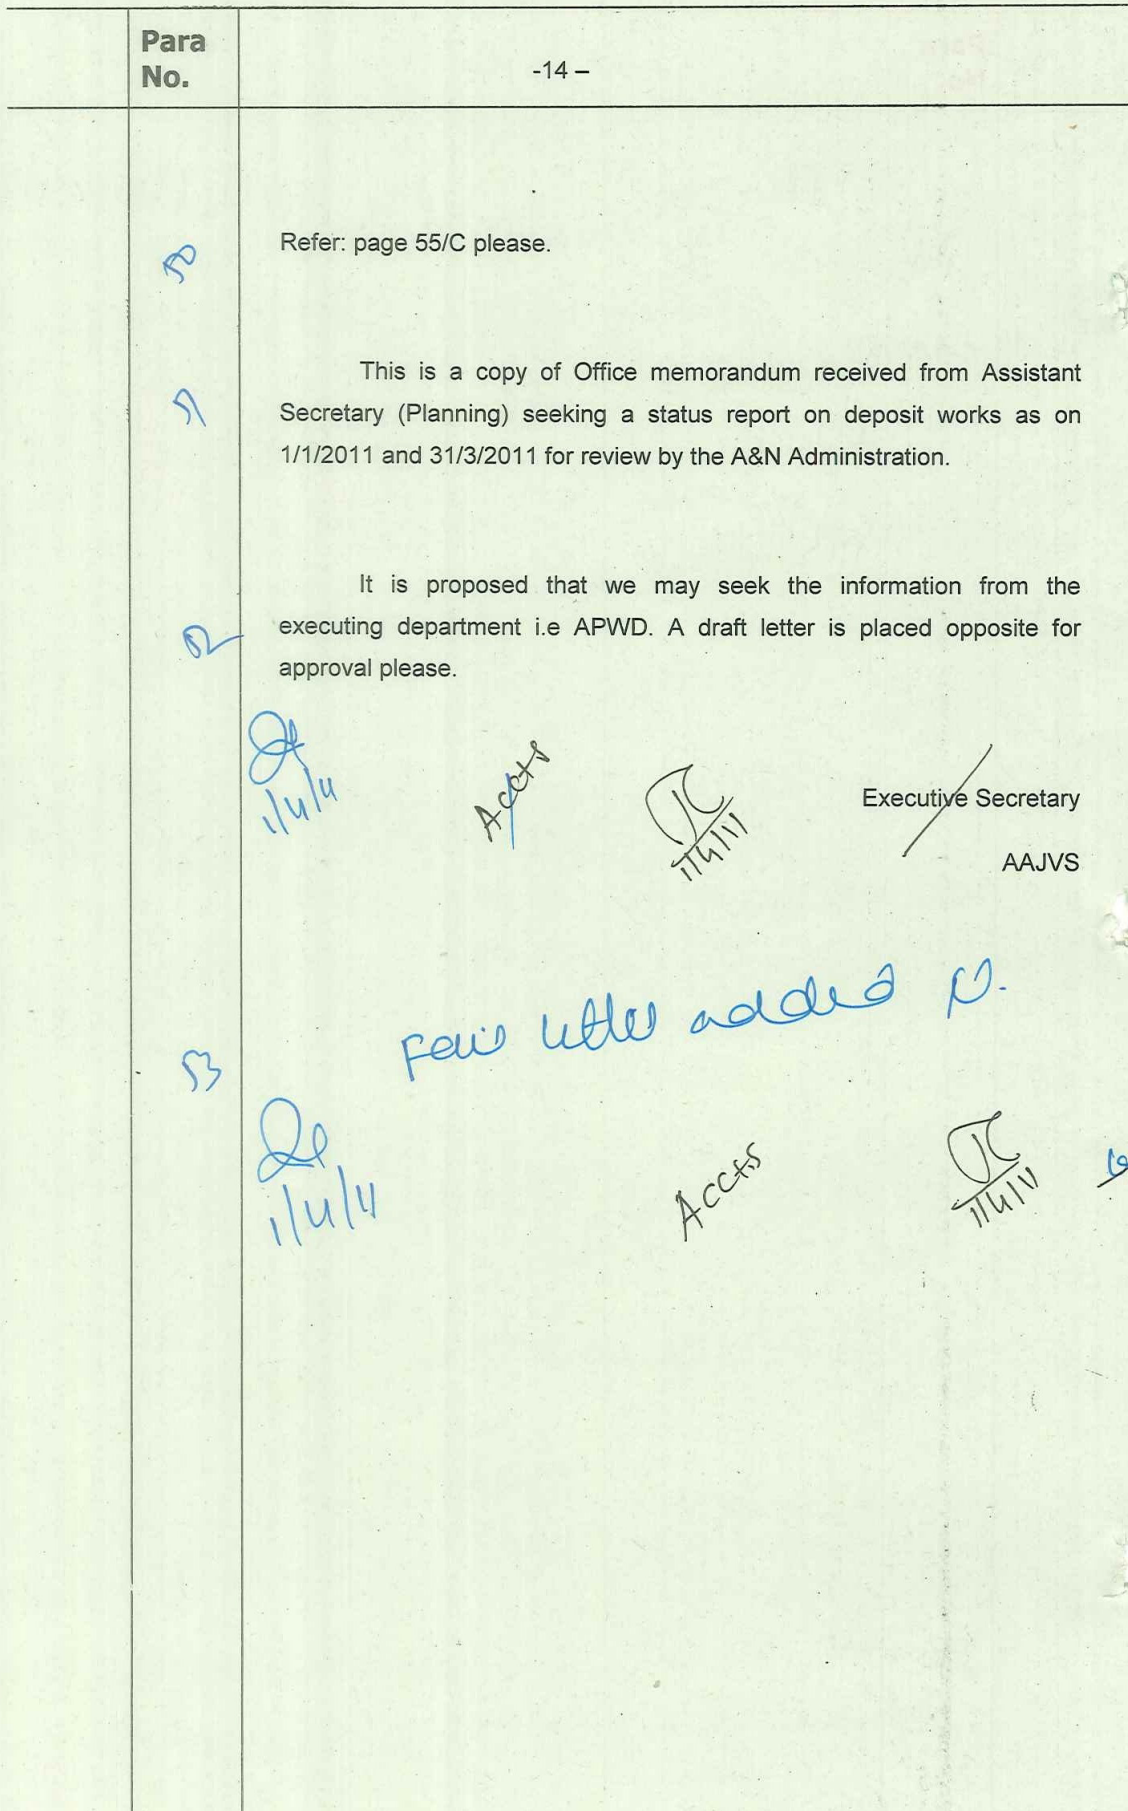 Para
No.
-14 –
50
Refer: page 55/C please.
51
This is a copy of Office memorandum received from Assistant
Secretary (Planning) seeking a status report on deposit works as on
1/1/2011 and 31/3/2011 for review by the A&N Administration.
52
It is proposed that we may seek the information from the
executing department i.e APWD. A draft letter is placed opposite for
approval please.
1/4/11
Accts
1/4/11
Executive Secretary
AAJVS
53
Fair letter added
1/4/11
Accts
1/4/11